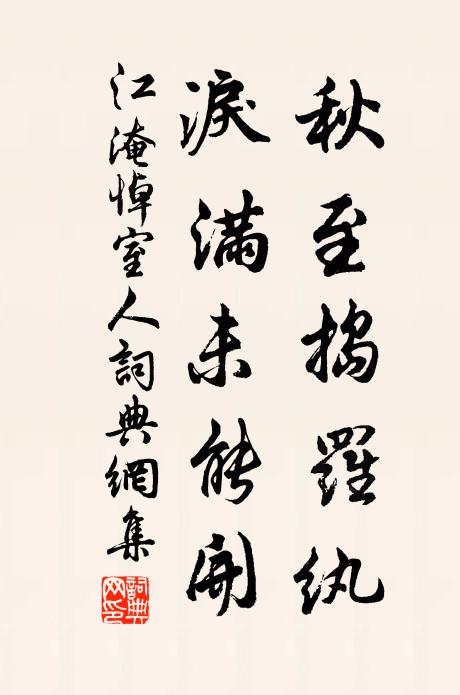 秋至搗羅紈
淚滿未能開
江淹悼室人詞典網集
詞典網印